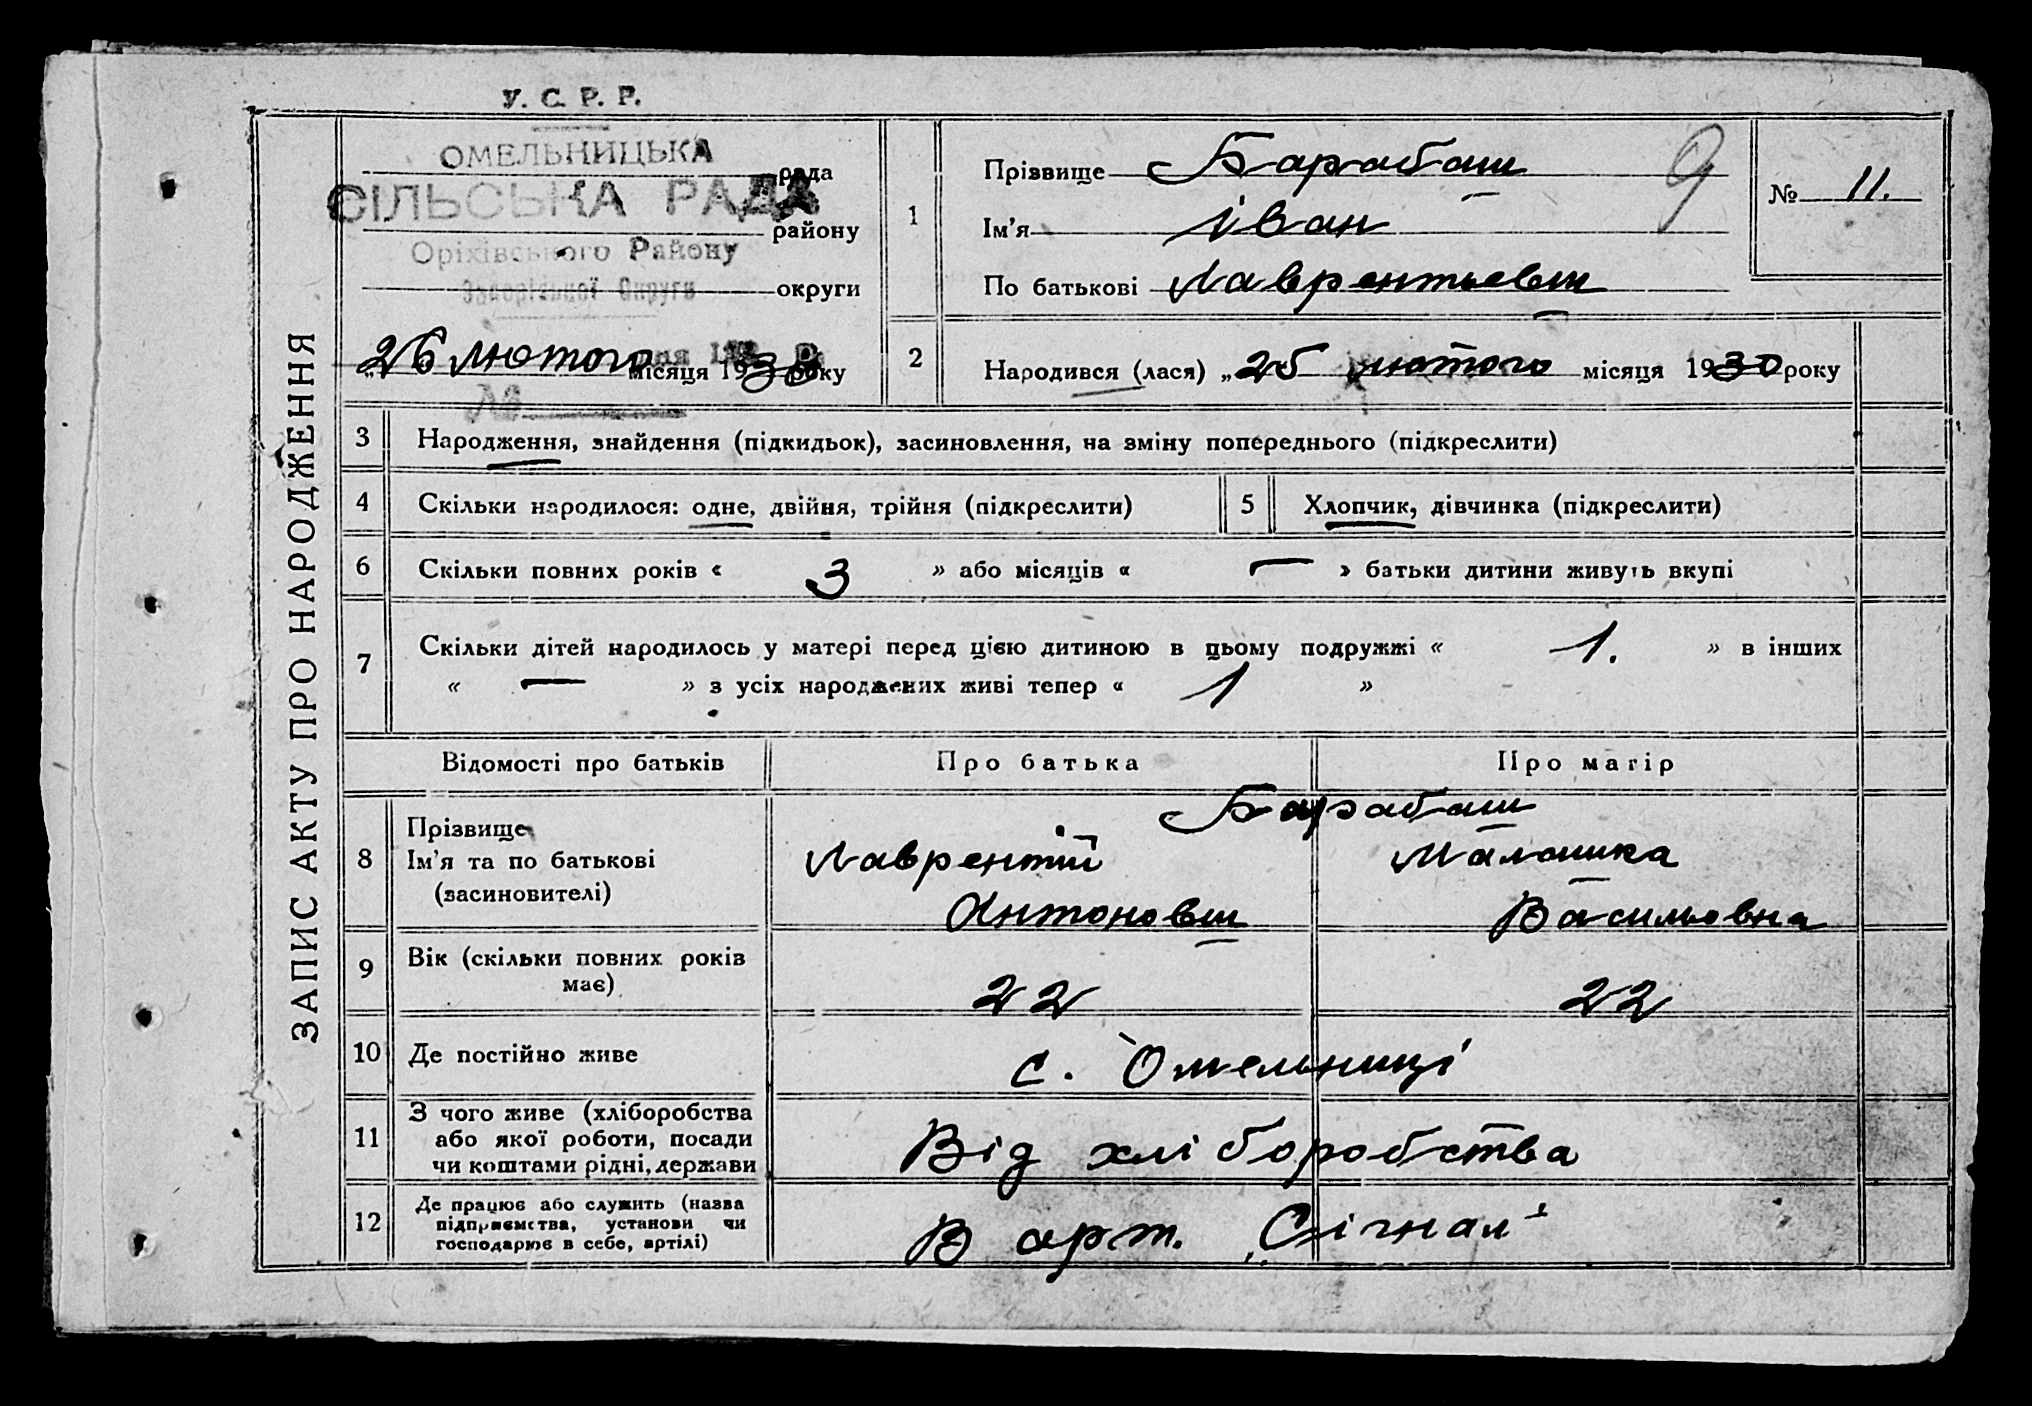 У. С. Р. Р.
ОМЕЛЬНИЦЬКА
рада
СІЛЬСЬКА РАДА
району
Оріхівського Району
Запорізької Округи
округи
26 лютого місяця 1930 року
№
ЗАПИС АКТУ ПРО НАРОДЖЕННЯ
1
Прізвище Барабаш
9
№ 11.
Ім'я Іван
По батькові Лаврентьевич
2 Народився (лася) „25 лютого місяця 1930 року
3 Народження, знайдення (підкидьок), засиновлення, на зміну попереднього (підкреслити)
4 Скільки народилося: одне, двійня, трійня (підкреслити) 5 Хлопчик, дівчинка (підкреслити)
6 Скільки повних років « 3 » або місяців « — » батьки дитини живуть вкупі
7 Скільки дітей народилось у матері перед цією дитиною в цьому подружжі « 1. » в інших
« — » з усіх народжених живі тепер « 1 »
Відомості про батьків Про батька Про матір
8 Прізвище Барабаш
Ім'я та по батькові Лаврентій
(засиновителі) Антонович Васильовна
9 Вік (скільки повних років має) 22 22
10 Де постійно живе с. Омельниці
11 З чого живе (хліборобства
або якої роботи, посади Від хліборобства
чи коштами рідні, держави
12 Де працює або служить (назва
підприємства, установи чи В арт. „Сігнал"
господарює в себе, артілі)